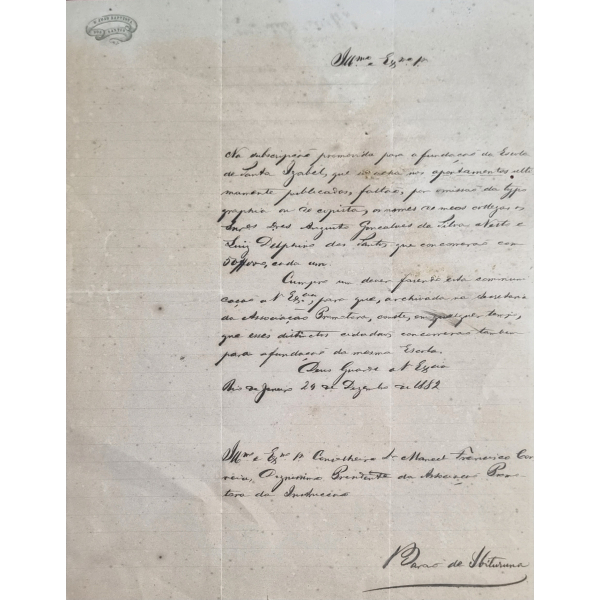 Illmo e Exmo Sr.
Na subscripção promovida para a fundação da Escola
de Santa Izabel, que se acha nos apontamentos ulti
mamente publicados, faltão, por omissão da typo
graphia ou do copista, os nomes de meus collegas os
Snres Dres Augusto Gonçalves da Silva Netto e
Luiz Delphino dos Santos que concorrerão com
50$000, cada um.
Cumpro um dever fazendo esta communi
cação a V. Exa. para que, archivada na Secretaria
da Associação Promotora, conste, em qualquer tempo,
que esses distinctos cidadãos concorrerão tambem
para a fundação da mesma Escola.
Deus Guarde a V. Excia
Rio de Janeiro 29 de Dezembro de 1882
Illmo e Exmo Sr. Conselheiro Dr Manoel Francisco Cor
reia, Dignissimo Presidente da Associação Promo
tora da Instrucção
Barão de Ibituruna